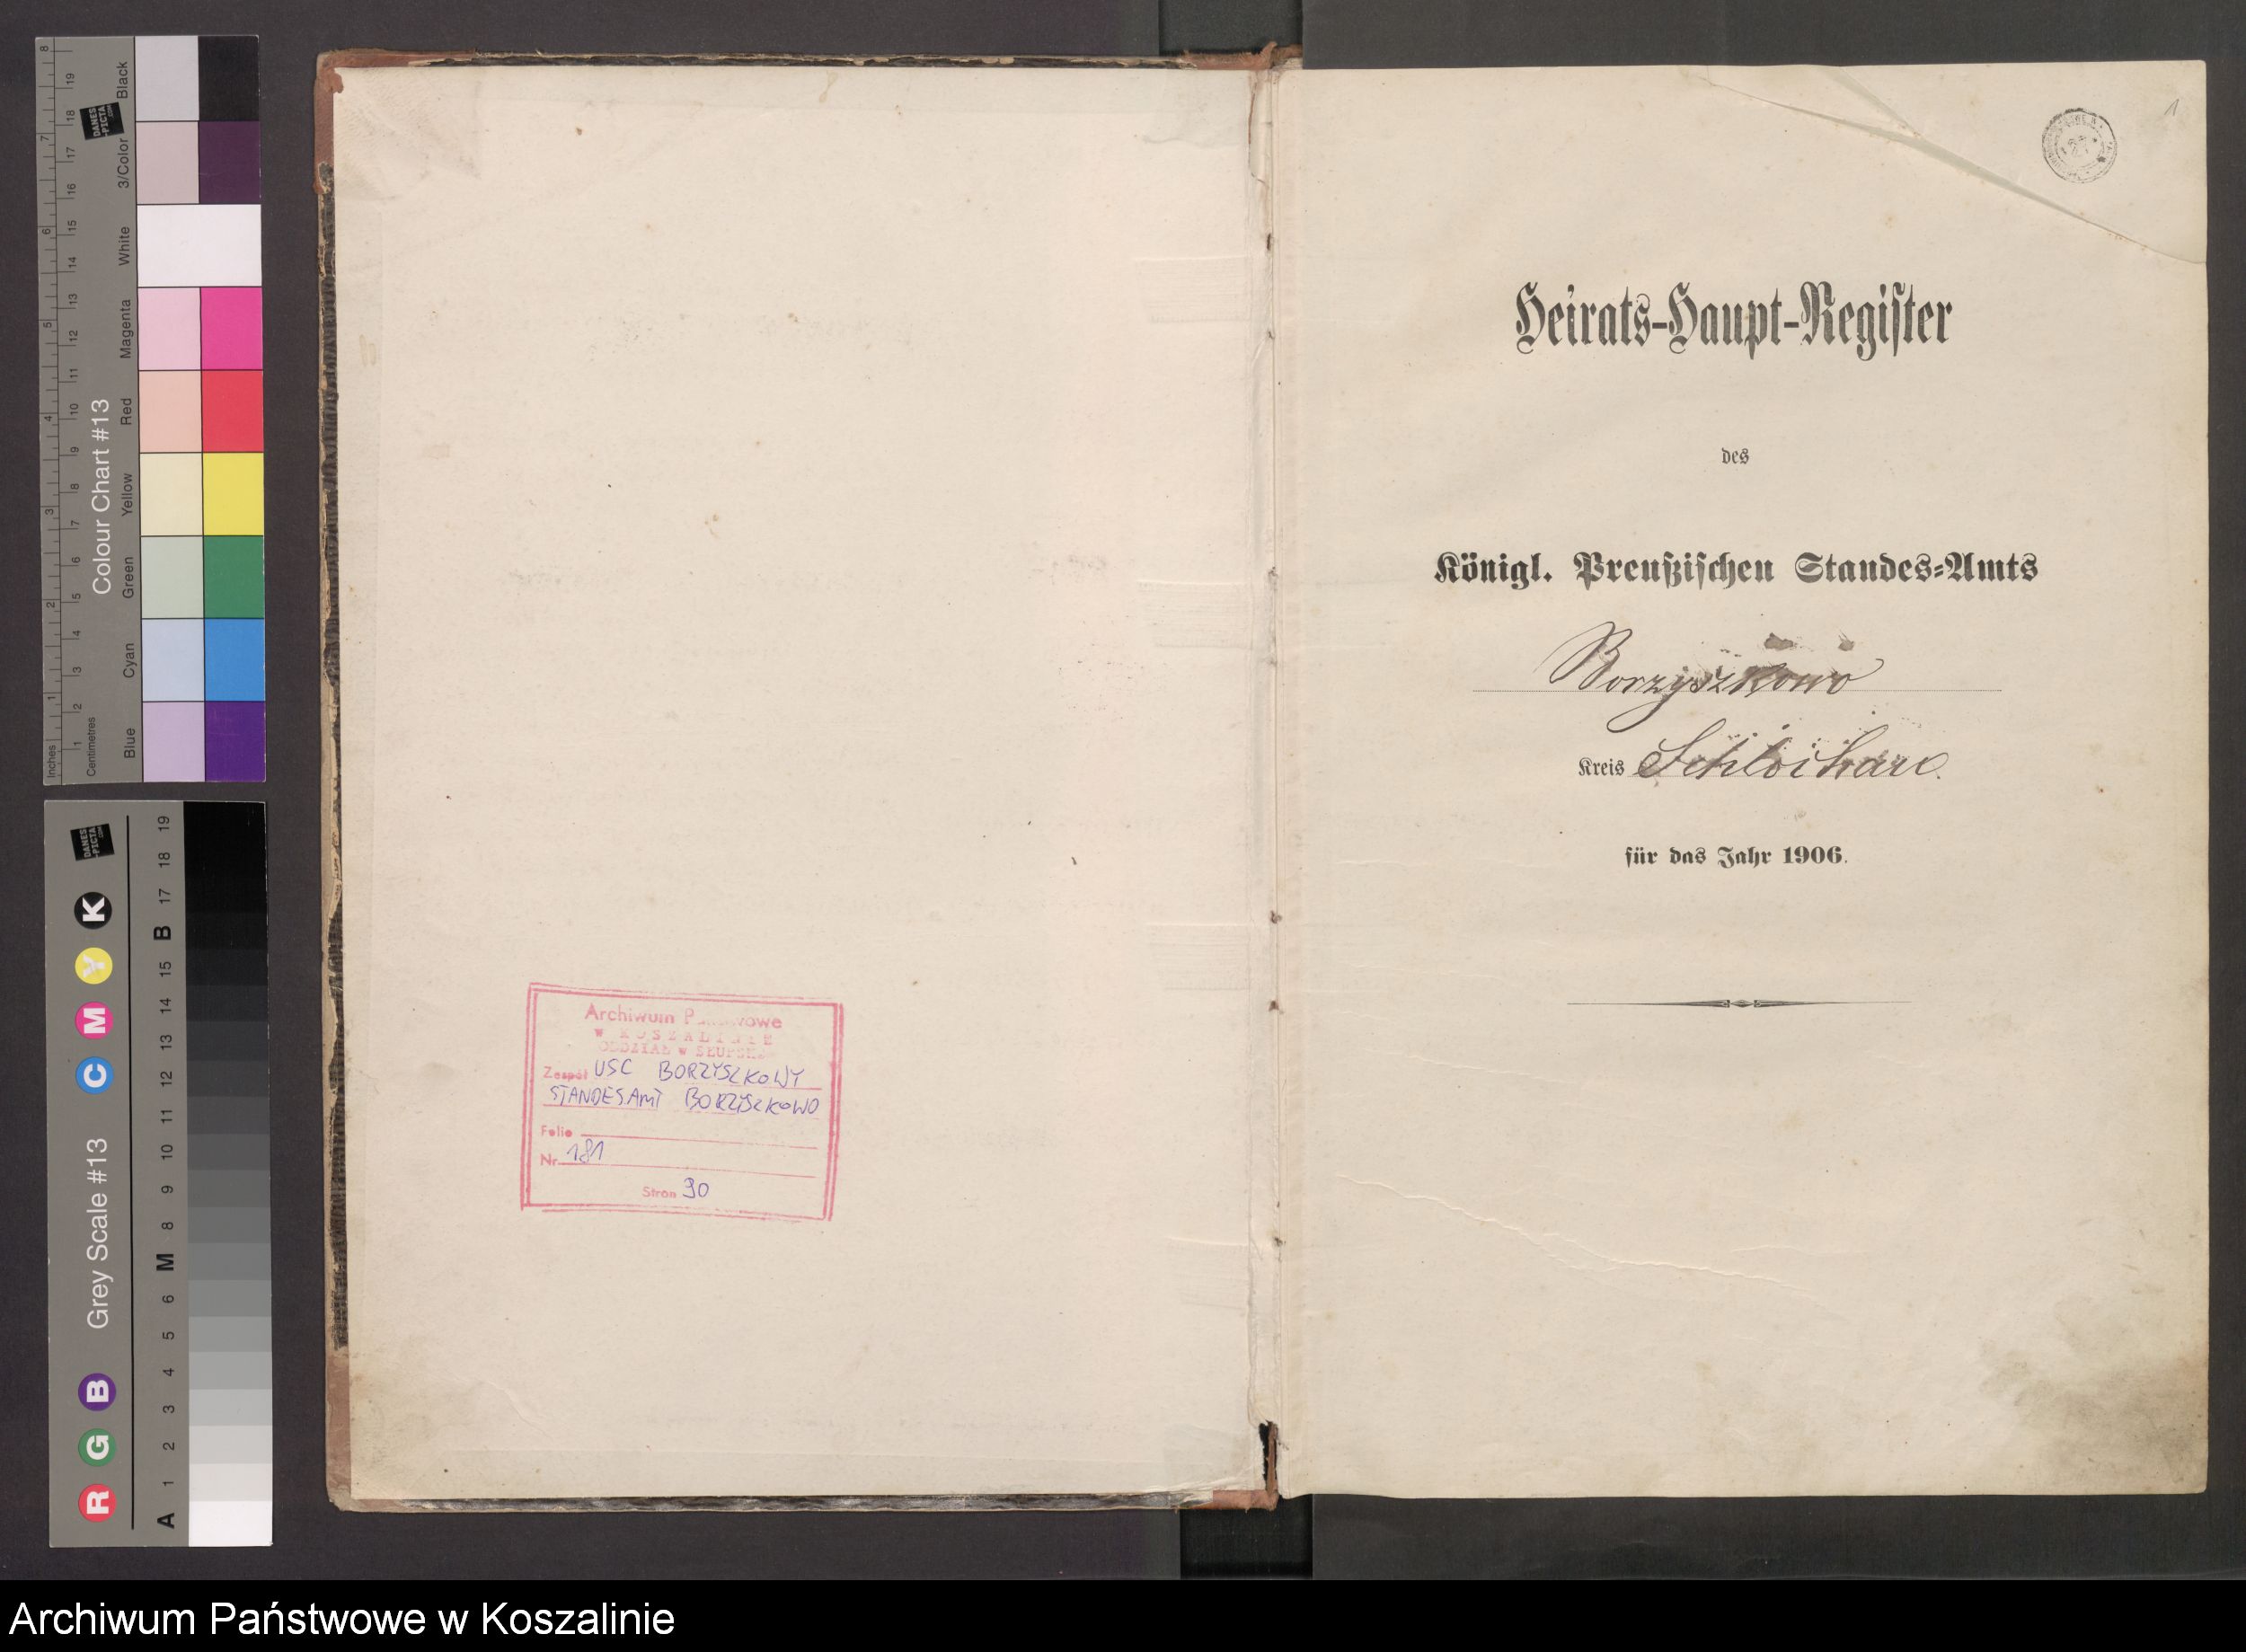 Archiwum Państwowe
w KOSZALINIE
ODDZIAŁ w SŁUPSKU
Zespół USC BORZYSZKOWY
STANDESAMT BORZYSZKOWO
Folio
Nr. 181
Stron 90
1
Heirats-Haupt-Register
des
Königl. Preußischen Standes-Amts
Borzyszkowo
Kreis Schlochau.
für das Jahr 1906.
Colour Chart #13
Inches 1 2 3 4 5 6 7 8
Centimetres 1 2 3 4 5 6 7 8 9 10 11 12 13 14 15 16 17 18 19
Blue Cyan Green Yellow Red Magenta White 3/Color Black
DANES
-PICTA
.COM
Grey Scale #13
R G B C M Y K
A 1 2 3 4 5 6 M 8 9 10 11 12 13 14 15 B 17 18 19
DANES
-PICTA
.COM
Archiwum Państwowe w Koszalinie